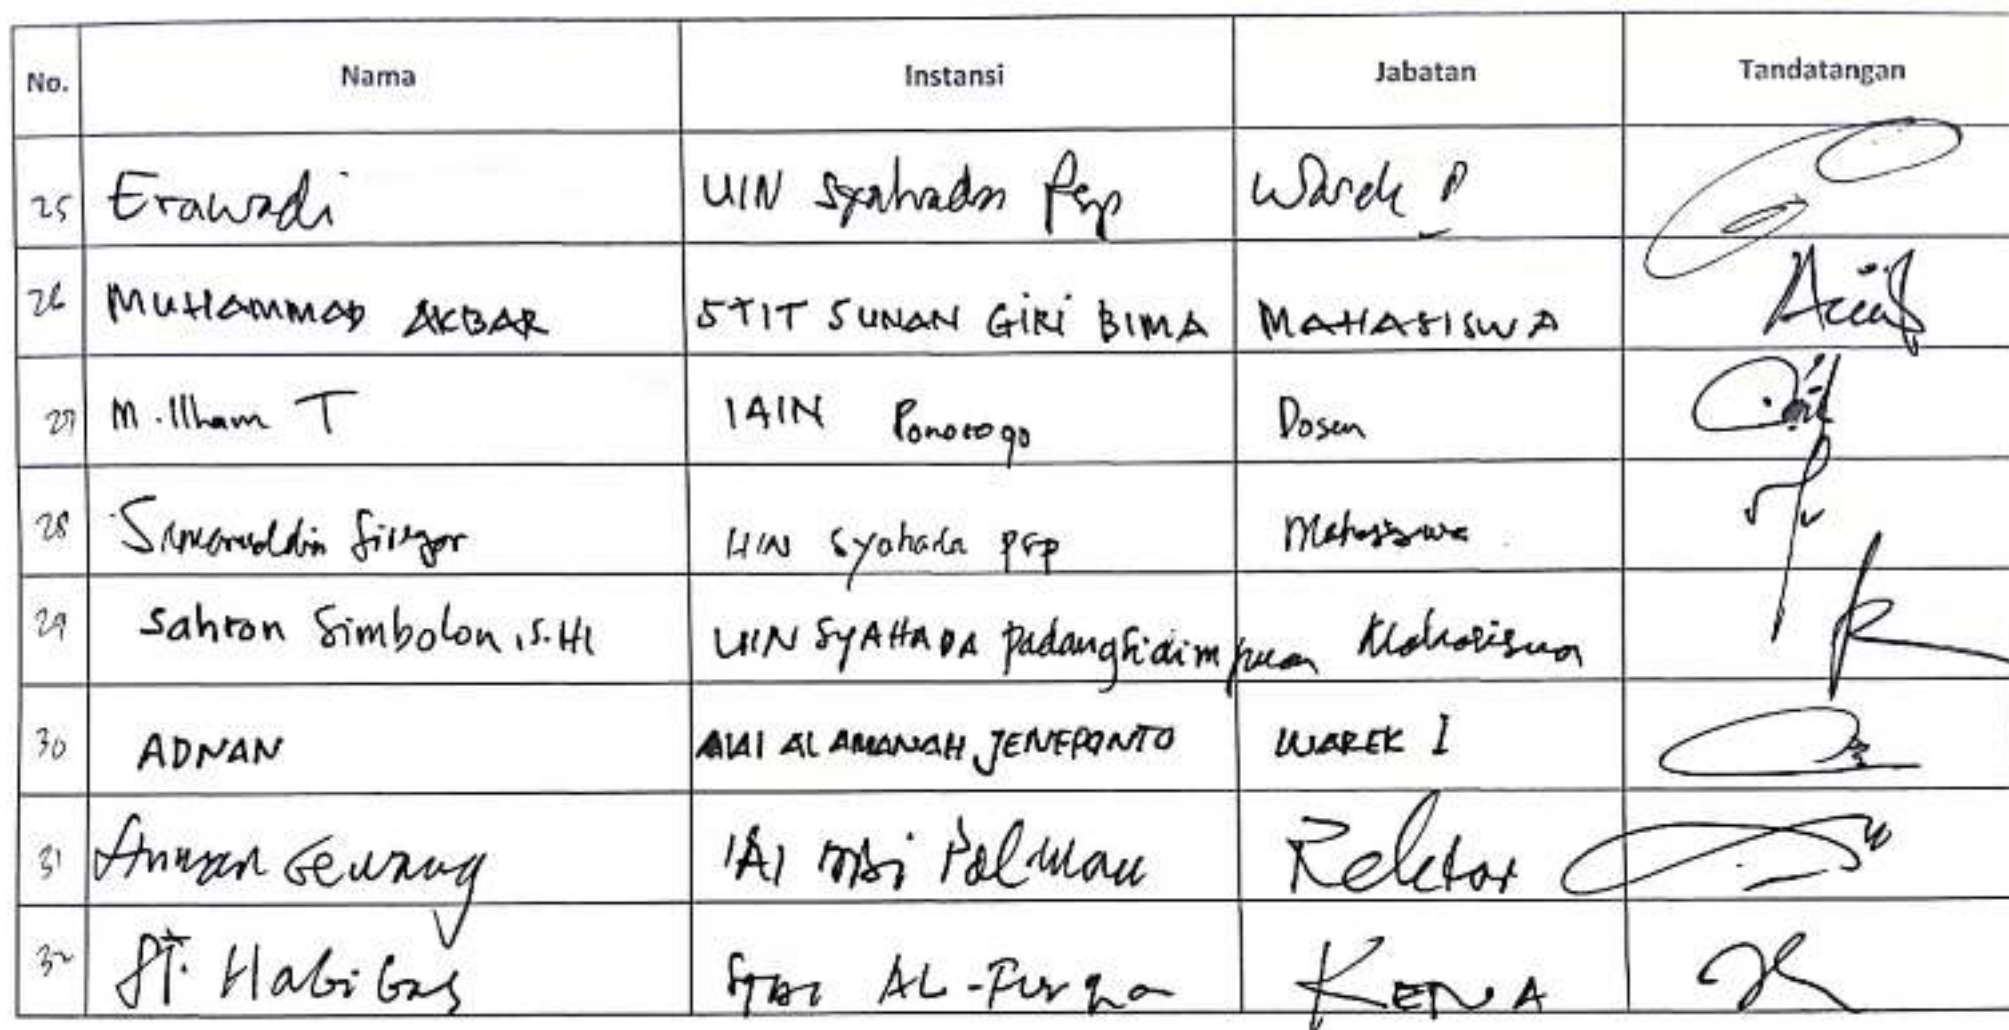 No. Nama Instansi Jabatan Tandatangan
25 Erawadi UIN Syahada Psp Warek
26 MUHAMMAD AKBAR STIT SUNAN GIRI BIMA MAHASISWA
27 M. Ilham T IAIN Ponorogo Dosen
28 Siregar UIN Syahada PSP Mahasiswa
29 Sahron Simbolon, S.HI UIN SYAHADA Padangsidimpuan Mahasiswa
30 ADNAN AL AMANAH JENEPONTO WAREK I
31 IAI Rektor
32 St. Habibah AL-Furqan KETUA